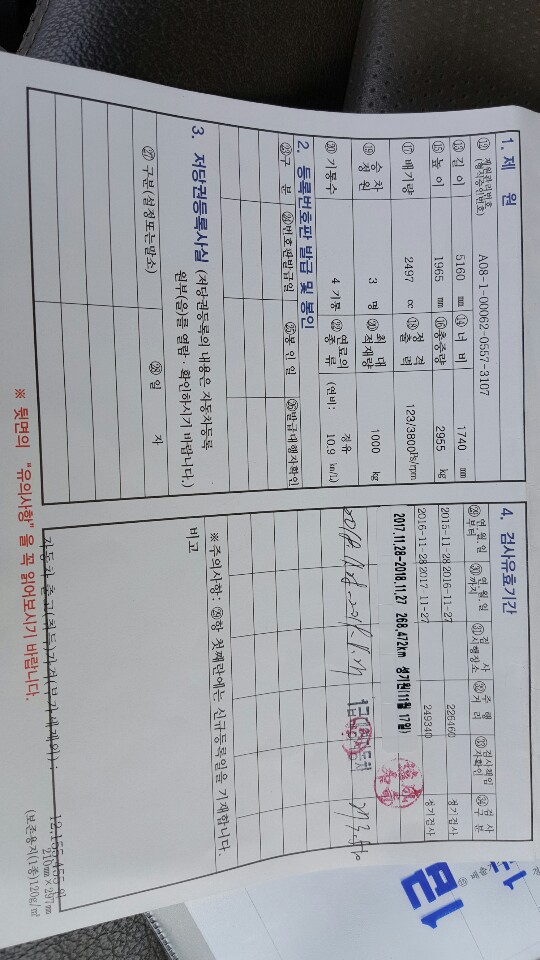 1. 제 원
⑫ 제원관리번호 (형식승인번호) A08-1-00062-0557-3107
⑬ 길 이 5160 mm ⑭ 너 비 1740 mm
⑮ 높 이 1965 mm ⑯ 총중량 2955 kg
⑰ 배기량 2497 cc ⑱ 정격출력 123/3800ps/rpm
⑲ 승차정원 3 명 ⑳ 최대적재량 1000 kg
㉑ 기통수 4 기통 ㉒ 연료의 종류 경유 (연비: 10.9 km/L)
2. 등록번호판 발급 및 봉인
㉓구 분 ㉔번호판발급일 ㉕봉 인 일 ㉖발급대행자확인
3. 저당권등록사실 (저당권등록의 내용은 자동차등록
원부(을)를 열람 · 확인하시기 바랍니다.)
㉗ 구분(설정또는말소) ㉘ 일 자
※ 뒷면의 "유의사항"을 꼭 읽어보시기 바랍니다.
4. 검사유효기간
㉙ 연.월.일 부터 ㉚ 연.월.일 까지 ㉛ 검 사 시행장소 ㉜ 주 행 거 리 ㉝ 검사책임자확인 ㉞ 검 사 구 분
2015-11-28 2016-11-27 226460 정기검사
2016-11-28 2017-11-27 249340 정기검사
2017.11.28-2018.11.27 268,472km 정기검(11월 17일)
※주의사항: ㉙항 첫째란에는 신규등록일을 기재합니다.
비고
자동차 출고(취득)가격(부가세제외): 12,155,455 원
210mm×297mm
(보존용지(1종)120g/㎡)